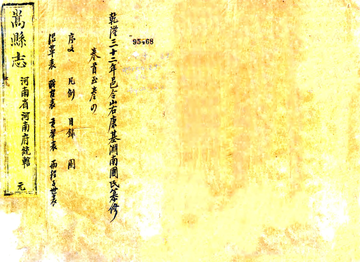 95468
乾隆三十二年邑令山右康基淵南圃氏纂修
卷首至卷
序文 凡例 目録 圖
沿革表 職官表 舉表 両程子世表
嵩縣志
河南省河南府統轄
元